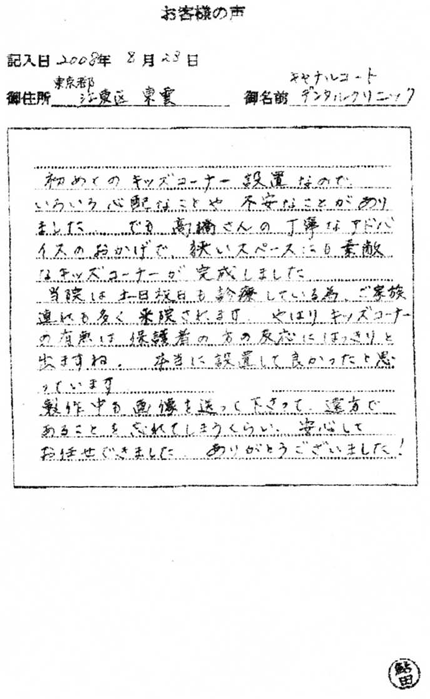 お客様の声
記入日 2008年 8月 23日
御住所 東京都江東区 東雲
御名前 キャナルコートデンタルクリニック
初めてのキッズコーナー設置なので、
いろいろ心配なことや、不安なことがあり
ました。でも、高橋さんの丁寧なアドバ
イスのおかげで、狭いスペースにも素敵
なキッズコーナーが完成しました
当院は土日祝日も診療している為、ご家族
連れも多く来院されます。やはりキッズコーナー
の有無は保護者の方の反応にはっきりと
出ますね。本当に設置して良かったと思
っています
製作中も画像を送って下さって、遠方で
あることを忘れてしまうくらい、安心して
お任せできました。ありがとうございました！
鮎田